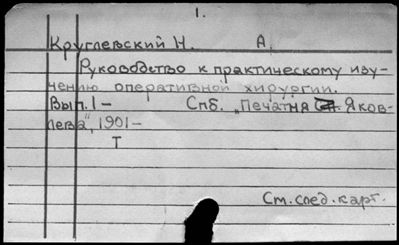 1.
Круглевский Н. А.
Руководство к практическому изу-
чению оперативной хирургии.
Вып. 1 – Спб. „Печатня Яков-
лева", 1901–
Т
См. след. карт.